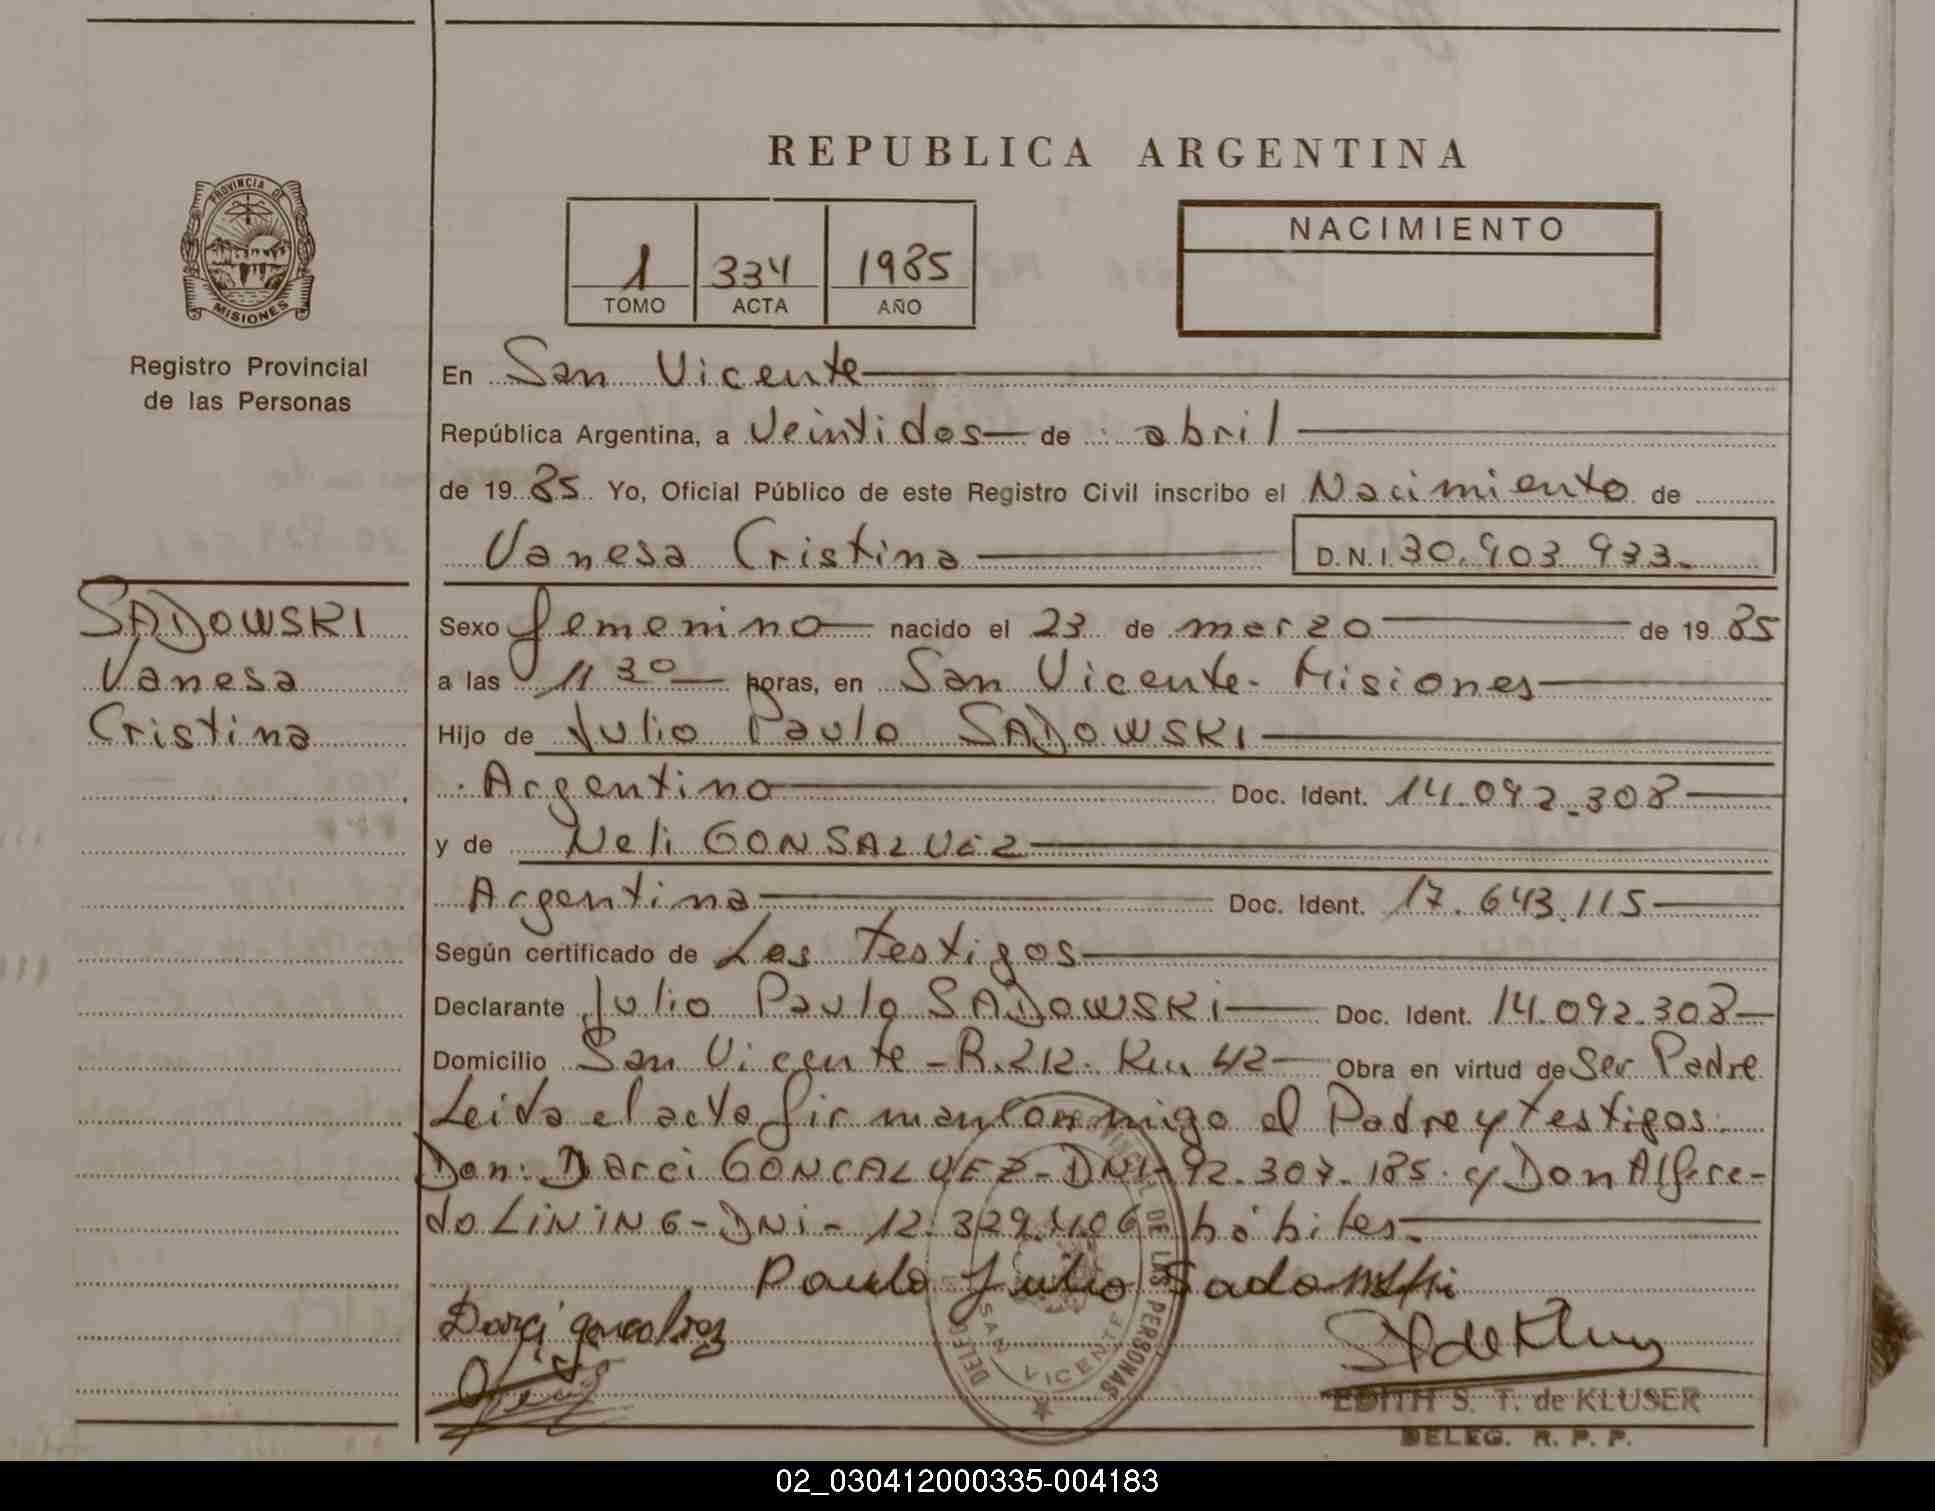 REPUBLICA ARGENTINA
PROVINCIA DE
MISIONES
Registro Provincial
de las Personas
1 334 1985
TOMO ACTA AÑO
NACIMIENTO
En San Vicente
República Argentina, a Veintidos de abril
de 1985 Yo, Oficial Público de este Registro Civil inscribo el Nacimiento de
Vanesa Cristina D.N.I. 30.903.933.
SADOWSKI
Vanesa
Cristina
Sexo femenino nacido el 23 de marzo de 1985
a las 11 30 horas, en San Vicente - Misiones
Hijo de Julio Paulo SADOWSKI
Argentino Doc. Ident. 14.092.308
y de Neli GONSALVEZ
Argentina Doc. Ident. 17.643.115
Según certificado de Los Testigos
Declarante Julio Paulo SADOWSKI Doc. Ident. 14.092.308
Domicilio San Vicente - R.212. Km 42 Obra en virtud de Ser Padre
Leida el acta firman conmigo el Padre y testigos:
Don: Darci GONCALVEZ - DNI - 92.307.185. y Don Alfre-
do LiNiNG - DNi - 12.329.406 hábiles.
Paulo Julio Sadowski
Darci goncalvez
DELEG
DE LAS PERSONAS
SAN VICENTE
EDITH S. T. de KLUSER
DELEG. R. P. P.
02_030412000335-004183